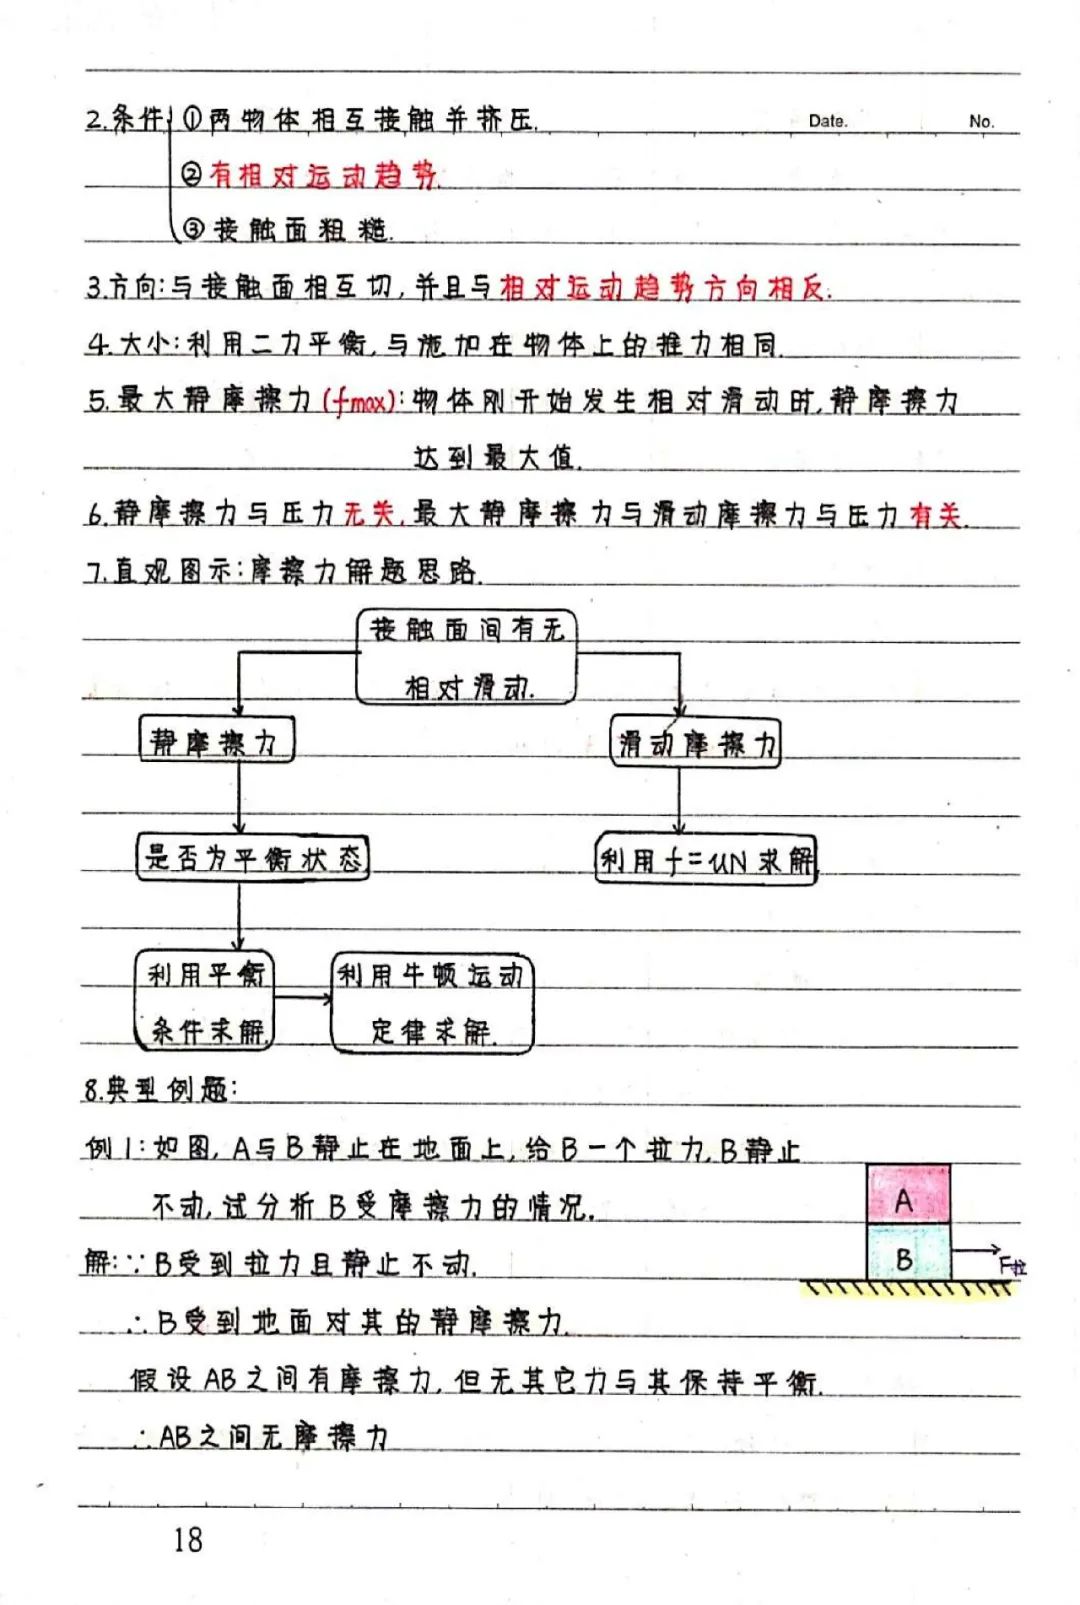 Date. No.
2.条件 ①两物体相互接触并挤压.
②有相对运动趋势.
③接触面粗糙.
3.方向:与接触面相互切,并且与相对运动趋势方向相反.
4.大小:利用二力平衡,与施加在物体上的推力相同.
5.最大静摩擦力(fmax):物体刚开始发生相对滑动时,静摩擦力
达到最大值.
6.静摩擦力与压力无关,最大静摩擦力与滑动摩擦力与压力有关.
7.直观图示:摩擦力解题思路.
接触面间有无
相对滑动.
静摩擦力
滑动摩擦力
是否为平衡状态
利用f=uN求解
利用平衡
条件求解.
利用牛顿运动
定律求解.
8.典型例题:
例1:如图,A与B静止在地面上,给B一个拉力,B静止
不动,试分析B受摩擦力的情况.
A
B
F拉
解:∵B受到拉力且静止不动.
∴B受到地面对其的静摩擦力.
假设AB之间有摩擦力,但无其它力与其保持平衡.
∴AB之间无摩擦力
18